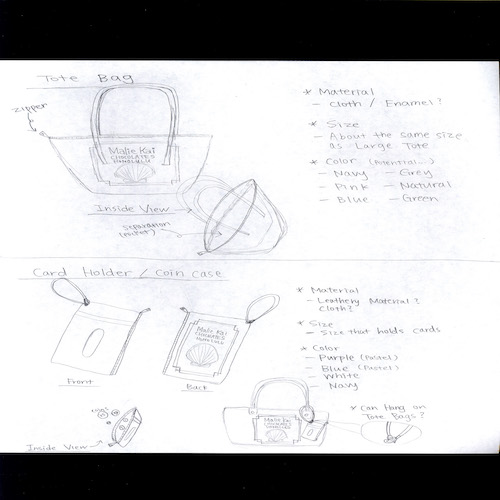 Tote Bag
zipper
Malie Kai
CHOCOLATES
HONOLULU
Inside View
separation
(picket)
* Material
- Cloth / Enamel?
* Size
- About the same size
as Large Tote
* Color (Potential...)
- Navy - Grey
- Pink - Natural
- Blue - Green
Card Holder / Coin case
Front
Malie Kai
CHOCOLATES
HONOLULU
Back
* Material
- Leathery Material?
Cloth?
* Size
- Size that holds cards
* Color
- Purple (Pastel)
- Blue (Pastel)
- White
- Navy
Inside View
Malie Kai
CHOCOLATES
* Can Hang on
Tote Bags?